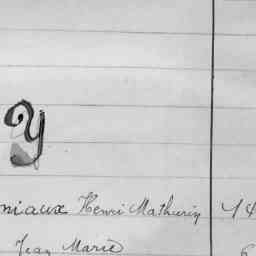 Y
niaux Henri Mathurin 14
Jean Marie